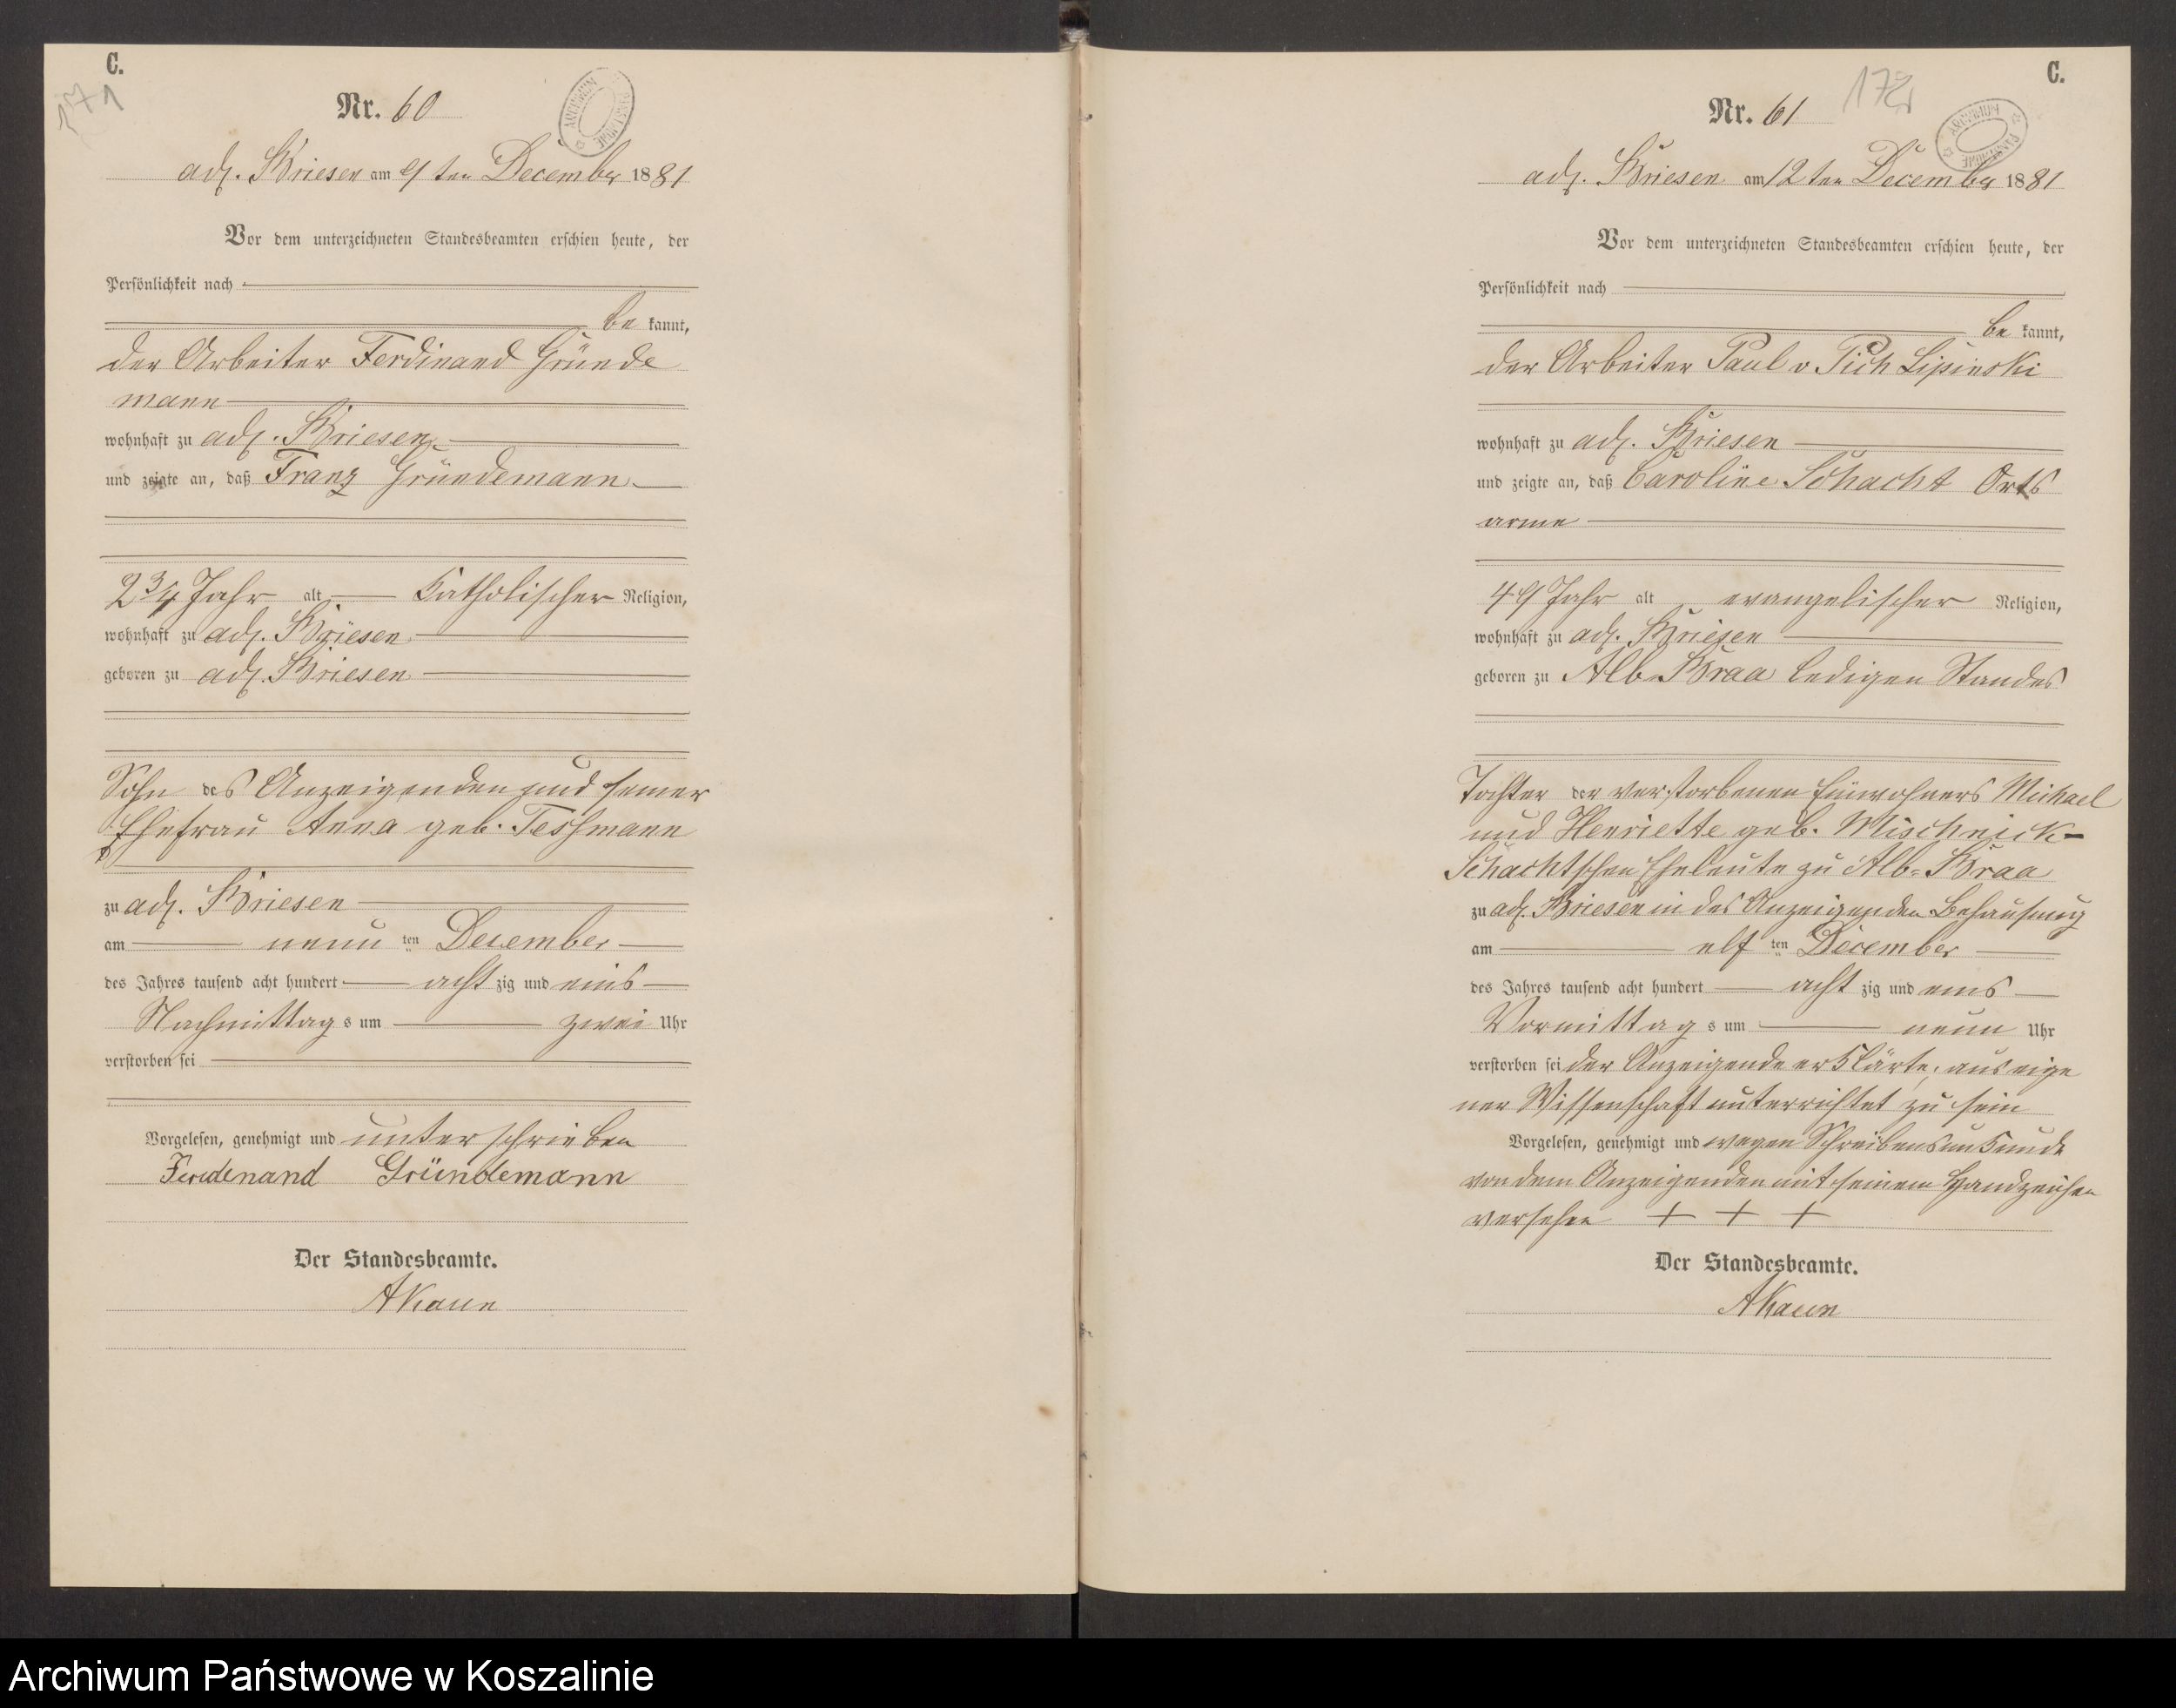 C.
171
Nr. 60
ARCHIWUM PAŃSTWOWE
adl. Briesen am 9 ten December 1881
Vor dem unterzeichneten Standesbeamten erschien heute, der
Persönlichkeit nach
be kannt,
der Arbeiter Ferdinand Gründe
mann
wohnhaft zu adl. Briesen
und zeigte an, daß Franz Gründemann
2 3/4 Jahr alt Katholischer Religion,
wohnhaft zu adl. Briesen
geboren zu adl. Briesen
Sohn des Anzeigenden und seiner
Ehefrau Anna geb. Tessmann
zu adl. Briesen
am neun ten December
des Jahres tausend acht hundert acht zig und eins
Nachmittag s um zwei Uhr
verstorben sei
Vorgelesen, genehmigt und unterschrieben
Ferdenand Gründemann
Der Standesbeamte.
AKaun
C.
172
Nr. 61
ARCHIWUM PAŃSTWOWE
adl. Briesen am 12 ten December 1881
Vor dem unterzeichneten Standesbeamten erschien heute, der
Persönlichkeit nach
be kannt,
der Arbeiter Paul v Pich Lipinski
wohnhaft zu adl. Briesen
und zeigte an, daß Caroline Schacht Orts
arme
49 Jahr alt evangelischer Religion,
wohnhaft zu adl. Briesen
geboren zu Alb. Braa ledigen Standes
Tochter der verstorbenen Einwohners Michael
und Henriette geb. Mischnick-
Schachtschen Eheleute zu Alb. Braa
zu adl. Briesen in des Anzeigenden Behausung
am elf ten December
des Jahres tausend acht hundert acht zig und eins
Vormittag s um neun Uhr
verstorben sei der Anzeigende erklärte, aus eige
ner Wissenschaft unterrichtet zu sein
Vorgelesen, genehmigt und wegen Schreibensunkunde
von dem Anzeigenden mit seinem Handzeichen
versehen + + +
Der Standesbeamte.
AKaun
Archiwum Państwowe w Koszalinie